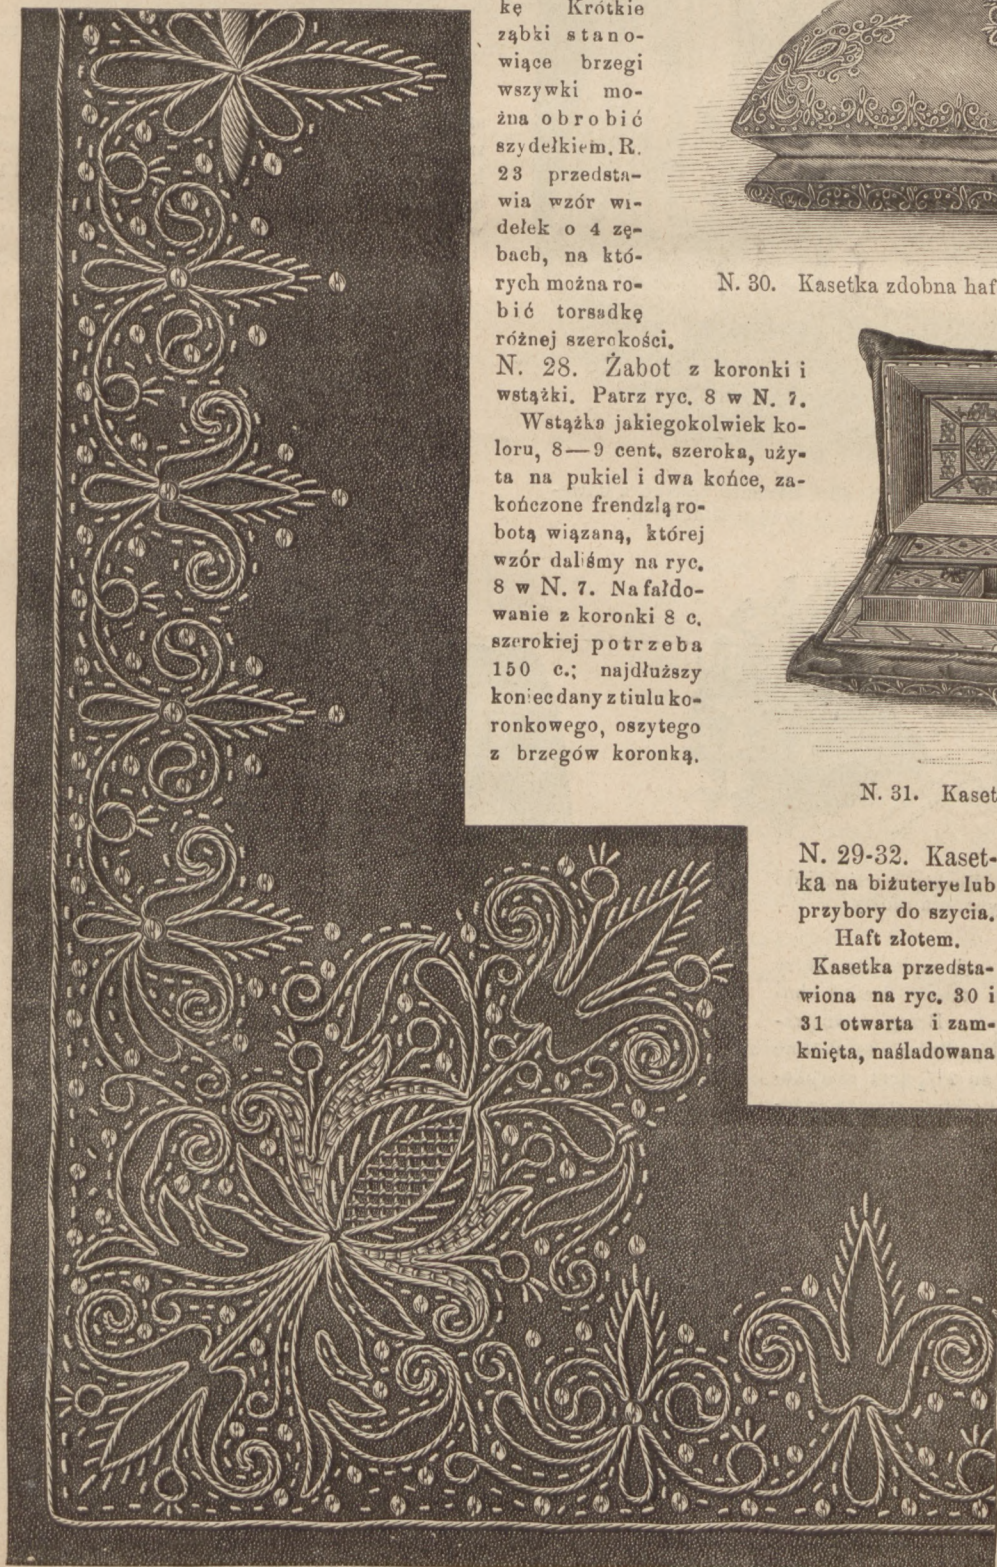 kę Krótkie
ząbki stano-
wiące brzegi
wszywki mo-
żna obrobić
szydełkiem. R.
23 przedsta-
wia wzór wi-
dełek o 4 zę-
bach, na któ-
rych można ro-
bić torsadkę
różnej szerokości.
N. 28. Żabot z koronki i
wstążki. Patrz ryc. 8 w N. 7.
Wstążka jakiegokolwiek ko-
loru, 8—9 cent. szeroka, uży-
ta na pukiel i dwa końce, za-
kończone frendzlą ro-
botą wiązaną, której
wzór daliśmy na ryc.
8 w N. 7. Na fałdo-
wanie z koronki 8 c.
szerokiej potrzeba
150 c.; najdłuższy
koniec dany z tiulu ko-
ronkowego, oszytego
z brzegów koronką.
N. 30. Kasetka zdobna haf
N. 31. Kaset
N. 29-32. Kaset-
ka na biżuterye lub
przybory do szycia.
Haft złotem.
Kasetka przedsta-
wiona na ryc. 30 i
31 otwarta i zam-
knięta, naśladowana